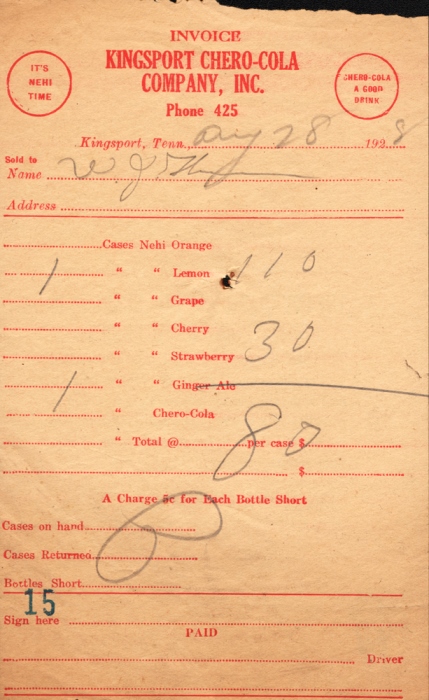 INVOICE
IT'S NEHI TIME
KINGSPORT CHERO-COLA
COMPANY, INC.
CHERO-COLA A GOOD DRINK
Phone 425
Kingsport, Tenn. 28 1928
Sold to
Name W J
Address
Cases Nehi Orange
1 " " Lemon 110
" " Grape
" " Cherry
" " Strawberry 30
1 " " Ginger Ale
" Chero-Cola
" Total @ per case $ 80
$
A Charge 5c for Each Bottle Short
Cases on hand
Cases Returned
Bottles Short
15
Sign here
PAID
Driver